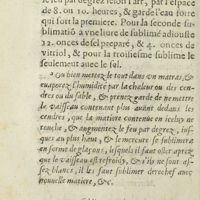 feu par degrez selon l'art, par l'espace
de 8. ou 10. heures, & garde l'eau forte
qui sort la premiere. Pour la seconde su-
blimatiõ au vieux de sublimé adiouste
32. onces de sel preparé, & 4. onces de
vitriol, & pour la troisiesme sublime le
seulement auec le sel.
2 Ou bien mettez le tout dans un matras, &
euaporez l'humidité par la chaleur ou des cen-
dres ou du sable, & prenez garde de ne mettre
de vaisseau contenant plus auant dedans les
cendres, que la matiere contenue en iceluy ne
touche, & augmentez le feu par degrez, ius-
ques au plus haut, & le mercure se sublimera
en forme de glaçons, lesquels il faut oster apres
que le vaisseau est refroidy, & s'ils ne sont as-
sez blancs, il les faut sublimer derechef auec
nouuelle matiere, &c.